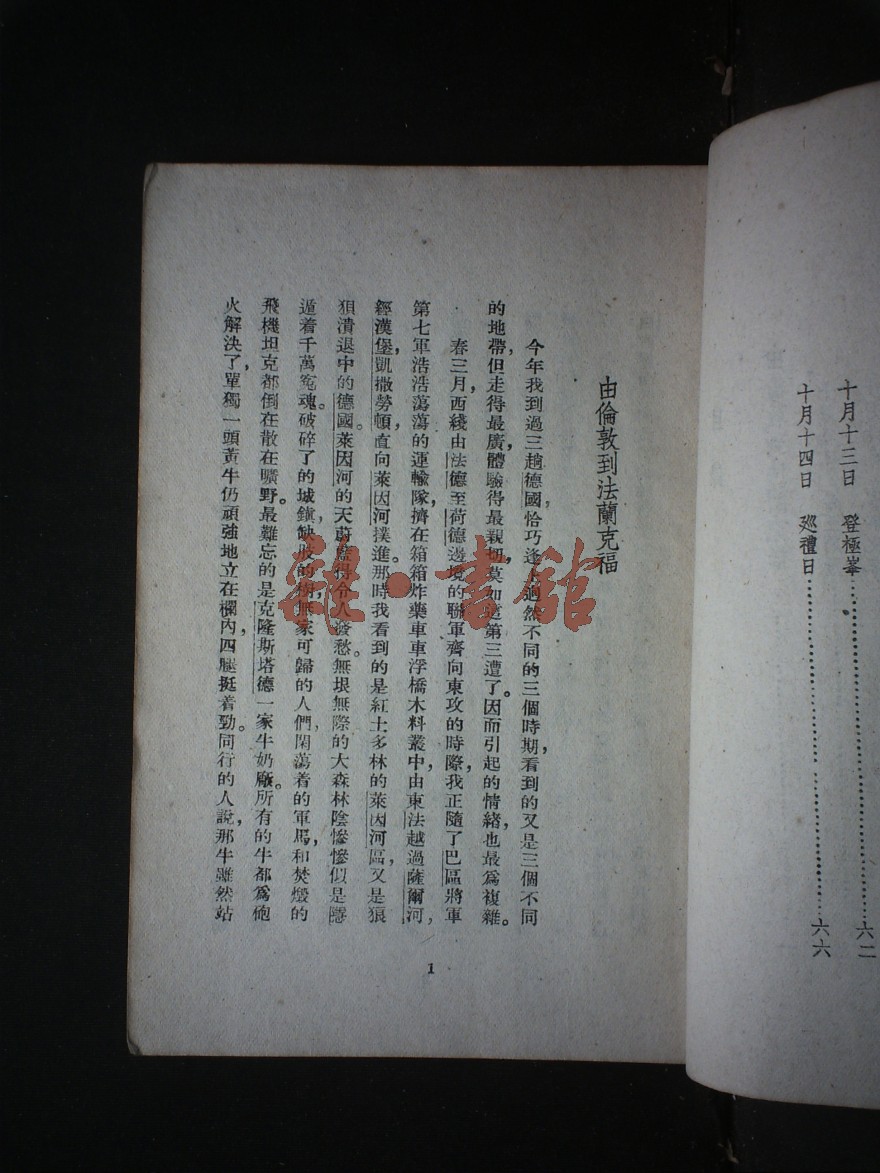 十月十三日　登極峯……六二
十月十四日　巡禮日……六六
由倫敦到法蘭克福
今年我到過三趟德國，恰巧逢上迥然不同的三個時期，看到的又是三個不同
的地帶，但走得最廣，體驗得最親切，莫如這第三遭了。因而引起的情緒也最爲複雜。
春三月，西綫由法德至荷德邊境的聯軍齊向東攻的時際，我正隨了巴區將軍
第七軍浩浩蕩蕩的運輸隊，擠在箱箱炸藥車車浮橋木料叢中，由東法越過薩爾河，
經漢堡，凱撒勞頓，直向萊因河撲進。那時我看到的是紅土多林的萊因河區，又是狼
狽潰退中的德國。萊因河的天蔚藍得令人發愁。無垠無際的大森林陰慘慘似是隱
遁着千萬寃魂。破碎了的城鎮，缺肢的樹，無家可歸的人們，閑蕩着的軍馬，和焚燬的
飛機坦克都倒在散在曠野。最難忘的是克隆斯塔德一家牛奶廠。所有的牛都爲砲
火解決了，單獨一頭黃牛仍頑強地立在欄內，四腿挺着勁。同行的人說，那牛雖然站
1
雜·書館